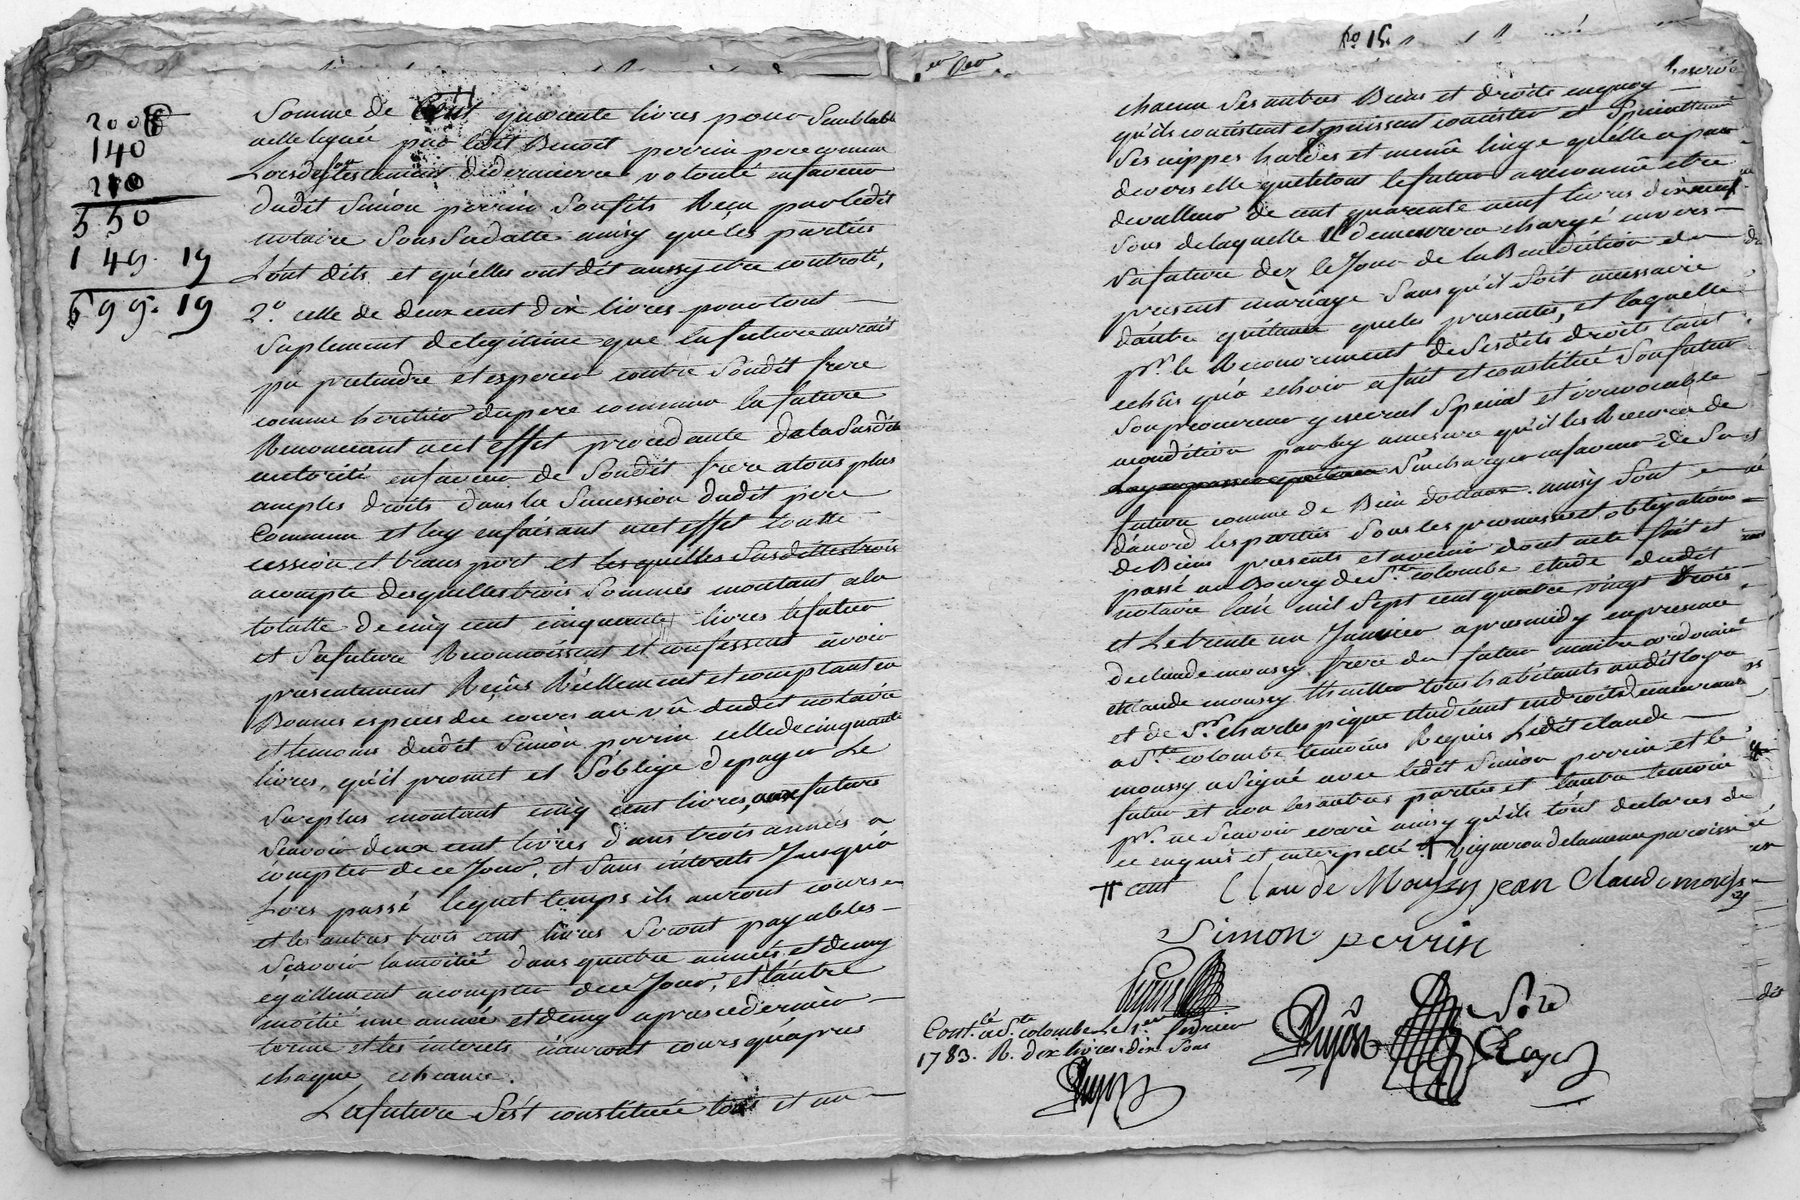 200
140
210
550
149. 19
699. 19
Somme de Cent quarante livres pour Semblable
a elle leguée par ledit Benoit perrin pere commun
Lors de son testament de derniere volonté enfaveur
dudit Simon perrin Son fils Reçu par ledit
notaire Sous Sa datte ainsy que les parties
L'ont dits et qu'elles ont dit aussy etre controlé,
2.º celle de deux cent dix livres pour tout
Suplement de legitime que la future auroit
pu pretendre et esperer contre Sondit frere
comme heritier du pere commun la future
Renonceant a cet effet procedante de la Susdite
autorité enfaveur de Sondit frere atous plus
amples droits dans la Succession dudit pere
Commun et luy enfaisant a cet effet toutte
cession et transport et lesquelles Susdittes trois
acompte desquelles trois Sommes montant a la
totalle de cinq cent cinquante livres le futur
et Sa future Reconnoissent et confessent avoir
presentement Reçus Réellement et comptant en
Bonnes especes du cours au vû dudit notaire
et temoins dudit Simon perrin celle de cinquante
livres, qu'il promet et S'oblige de payer Le
Surplus montant cinq cent livres, aux futurs
Scavoir deux cent livres dans trois années a
compter de ce Jour, et Sans interets Jusqu'a
Lors passé lequel temps ils auront cours
et les autres trois cent livres Seront payables
Scavoir la moitié dans quatre années et demy
egallement a compter de ce Jour, et l'autre
moitié une année et demy apres ce dernier
terme et les interets n'auront cours qu'apres
chaque echeance.
La future S'est constituée tous et un
chacun Ses autres Biens et droits en quoy
qu'ils consistent et puissent consister et Specialement
Ses nippes hardes et menue linge qu'elle a par
devers elle que le tout le futur a reconnu etre
de valleur de cent quarante neuf livres dix neuf
Sous de laquelle il demeurera chargé envers
Sa future dez le Jour de la Benediction du
present mariage Sans qu'il Soit necessaire
d'autre quittance que les presentes, et laquelle
pr. le Recouvrement de Sesdits droits tant
echus qu'a echoir a fait et constitué Son futur
Son procureur general Special et irrevocable
a condition par luy a mesure qu'il les Recevra de
S'en charger enfaveur de Sa
future comme de Bien dottaux. ainsy Sont
d'accord les parties Sous les promesses et obligations
de Biens presents et avenir dont acte fait et
passé au Bourg de Ste. colombe etude dudit
notaire l'an mil Sept cent quatre vingt trois
et Le trente un Janvier apres midy en presence
de claude moussy frere du futur maitre cordonnier
et claude moussy tous habitants audit
et de Sr. charles pigue etudiant en droits demeurant
a Ste. colombe temoins Requis Ledit claude
moussy a Signé avec ledit Simon perrin et le
futur et non les autres parties et l'autre temoin
pr. ne Scavoir ecrire ainsy qu'ils tout declares de
ce enquis et interpellé vigneron de la meme paroisse
cent Claude Moussy jean Claude moussy
Simon perrin
Pigue
Contlé. a Ste. colombe Le 1er fevrier
1783. R. dix livres dix Sous